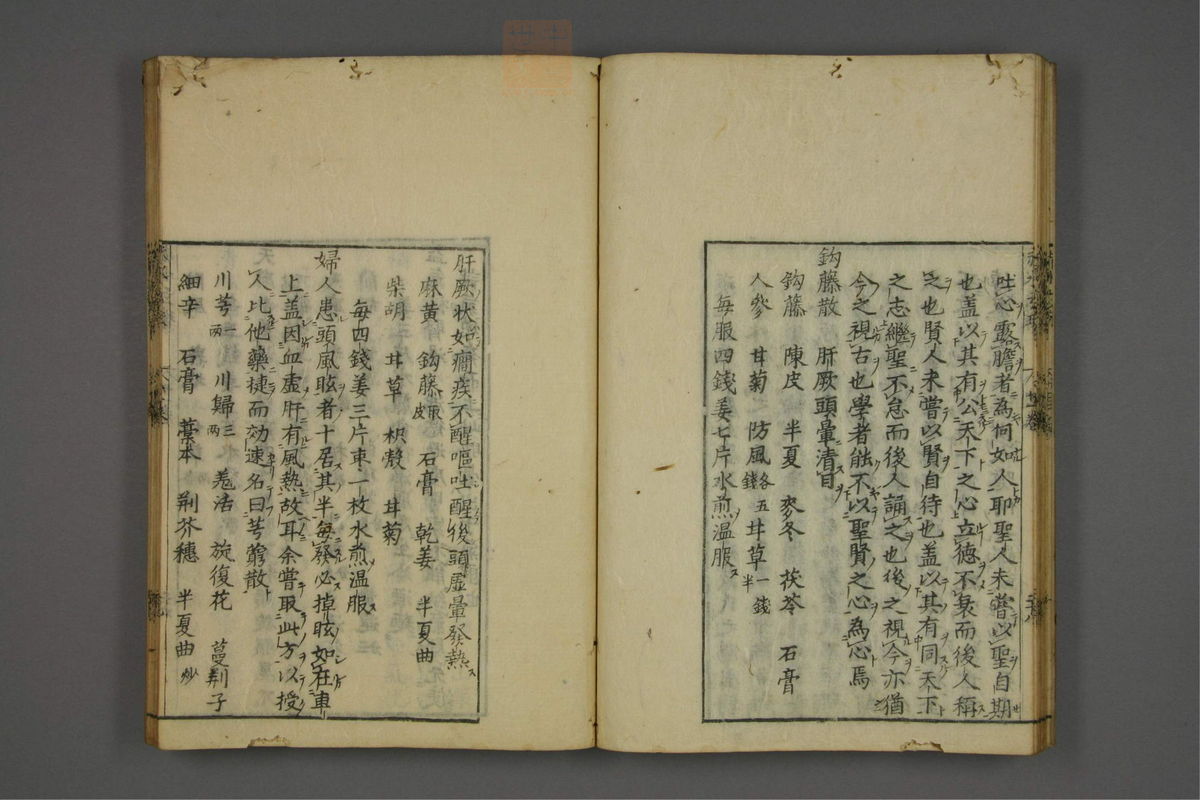 吐心露膽者為何如人耶聖人未嘗以聖自期
也盖以其有公天下之心立徳不衰而後人稱
之也賢人未嘗以賢自待也盖以其有同天下
之志繼聖不怠而後人誦之也後之視今亦猶
今之視古也學者能不以聖賢之心為心焉
鈎藤散 肝厥頭暈清目
鈎藤 陳皮 半夏 麥冬 茯苓 石膏
人參 甘菊 防風各五錢 甘草一錢半
每服四錢姜七片水煎温服
肝厥状如癎疾不醒嘔吐醒後頭虚暈發熱
麻黄 鈎藤取皮 石膏 乾姜 半夏曲
柴胡 甘草 枳殻 甘菊
每四錢姜三片枣一枚水煎温服
婦人患頭風眩者十居其半每發必掉眩如在車
上盖因血虚肝有風熱故耳余嘗取此方以授
人比他藥捷而効速名曰芎藭散
川芎一兩 川歸三兩 羗活 旋復花 蔓荆子
細辛 石膏 藁本 荆芥穗 半夏曲炒